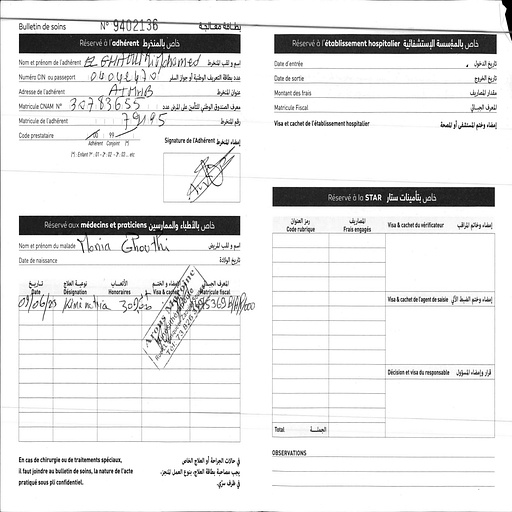 Bulletin de soins N° 9402136 بطاقة معالجة
Réservé à l'adhérent خاص بالمنخرط
Nom et prénom de l'adhérent EL GHAOUI Mohamed اسم و لقب المنخرط
Numéro CIN ou passeport 04042470 عدد بطاقة التعريف الوطنية أو جواز السفر
Adresse de l'adhérent عنوان المنخرط
Matricule CNAM N° 30783655
Matricule de l'adhérent 79195 رقم المنخرط
Code prestataire 00 99
Adhérent Conjoint (*)
(*) : Enfant 1er : 01 - 2e : 02 - 3e : 03 ... etc
Signature de l'Adhérent إمضاء المنخرط
Réservé aux médecins et praticiens خاص بالأطباء والممارسين
Nom et prénom du malade Monia Ghouthi اسم و لقب المريض
Date de naissance تاريخ الولادة
تاريخ نوعية العلاج الأتعاب الإمضاء و الختم المعرف الجبائي
Date Désignation Honoraires Visa & cachet Matricule fiscal
En cas de chirurgie ou de traitements spéciaux,
il faut joindre au bulletin de soins, la nature de l'acte
pratiqué sous pli confidentiel.
في حالات الجراحة أو العلاج الخاص
يجب مصاحبة بطاقة العلاج، بنوع العمل المنجز،
في ظرف سري.
Réservé à l'établissement hospitalier خاص بالمؤسسة الإستشفائية
Date d'entrée تاريخ الدخول
Date de sortie تاريخ الخروج
Montant des frais مقدار المصاريف
Matricule Fiscal المعرف الجبائي
Visa et cachet de l'établissement hospitalier إمضاء وختم المستشفى أو المصحة
Réservé à la STAR خاص بتأمينات ستار
رمز العنوان المصاريف
Code rubrique Frais engagés
Visa & cachet du vérificateur إمضاء وخاتم المراقب
Visa & cachet de l'agent de saisie
Décision et visa du responsable قرار وإمضاء المسؤول
Total الجملة
OBSERVATIONS